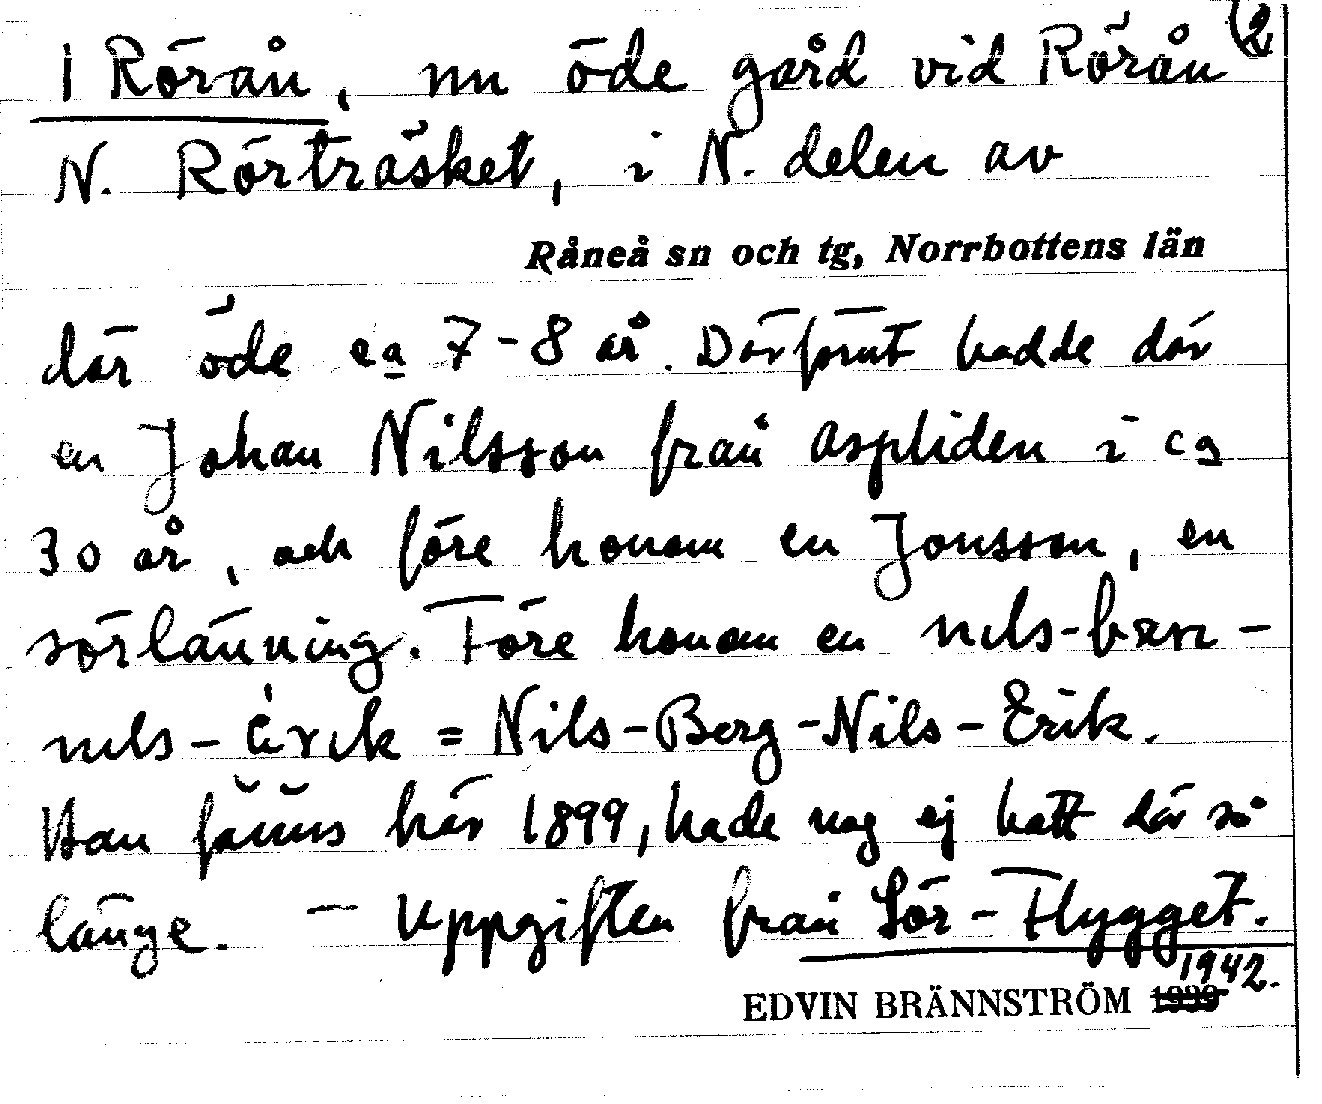 (2
i Rörån, nu öde gård vid Rörån
N. Rörträsket, i N. delen av
Råneå sn och tg, Norrbottens län
där öde ca 7-8 år. Därförut hadde där
en Johan Nilsson från Aspliden i ca
30 år, och före honom en Jonsson, en
sörlänning. Före honom en
= Nils-Berg-Nils-Erik.
Han fanns här 1899, hade nog ej hatt där så
länge. – Uppgiften från Sör-Flygget.
1942.
EDVIN BRÄNNSTRÖM 1939